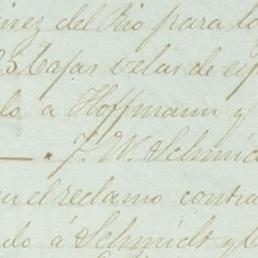 inez del Rio para lo
25 Cajas velas de esp
do a Hoffmann y
J. W. Schmid
en el reclamo contra
ado á Schmidt y C